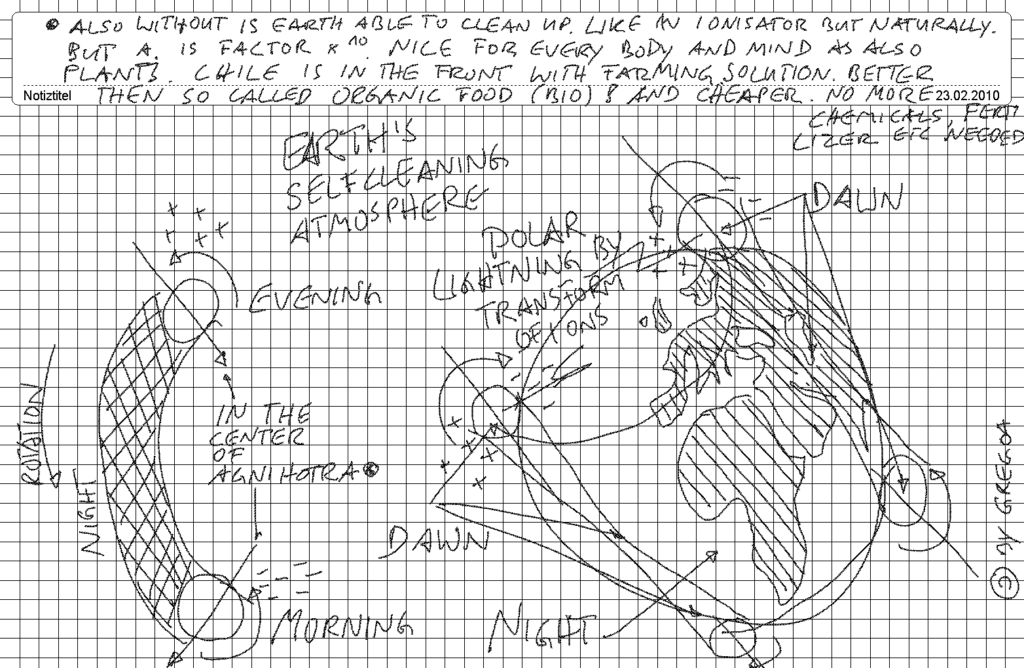 • ALSO WITHOUT IS EARTH ABLE TO CLEAN UP. LIKE AN IONISATOR BUT NATURALLY.
BUT A. IS FACTOR x 10. NICE FOR EVERY BODY AND MIND AS ALSO
PLANTS. CHILE IS IN THE FRONT WITH FARMING SOLUTION. BETTER
Notiztitel THEN SO CALLED ORGANIC FOOD (BIO) & AND CHEAPER. NO MORE 23.02.2010
CHEMICALS, FERTI
LIZER ETC NEEDED
EARTH'S
SELFCLEANING
ATMOSPHERE
+ + + + +
EVENING
ROTATION
NIGHT
IN THE
CENTER
OF
AGNIHOTRA •
MORNING
POLAR
LIGHTNING BY
TRANSFORM
OF IONS
DAWN
DAWN
NIGHT
© BY GREGOA